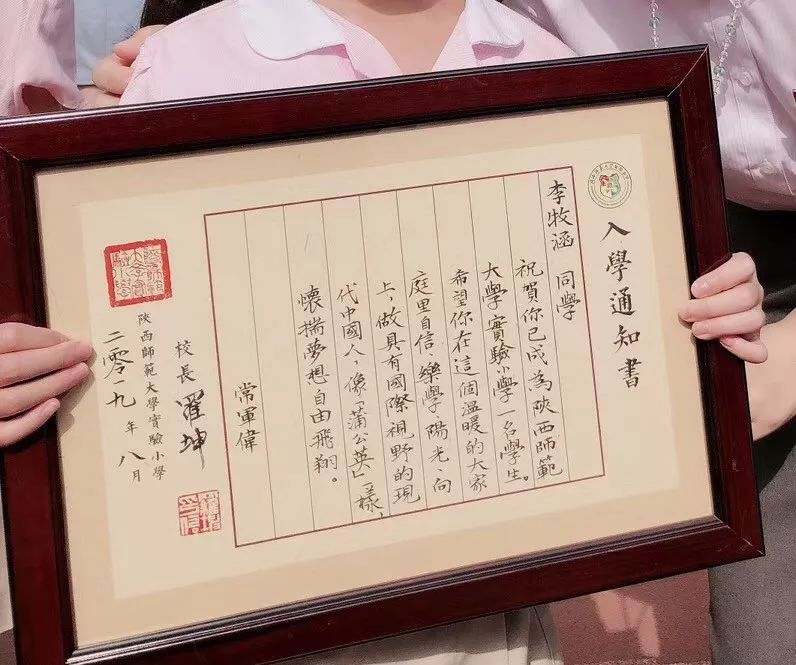 入學通知書
李牧涵 同學
祝賀你已成為陝西師範
大學實驗小學一名學生。
希望你在這個溫暖的大家
庭里自信、樂學、陽光、向
上，做具有國際視野的現
代中國人，像「蒲公英」一樣，
懷揣夢想自由飛翔。
常軍偉
校長 羅坤
陝西師範大學實驗小學
二零一九年八月